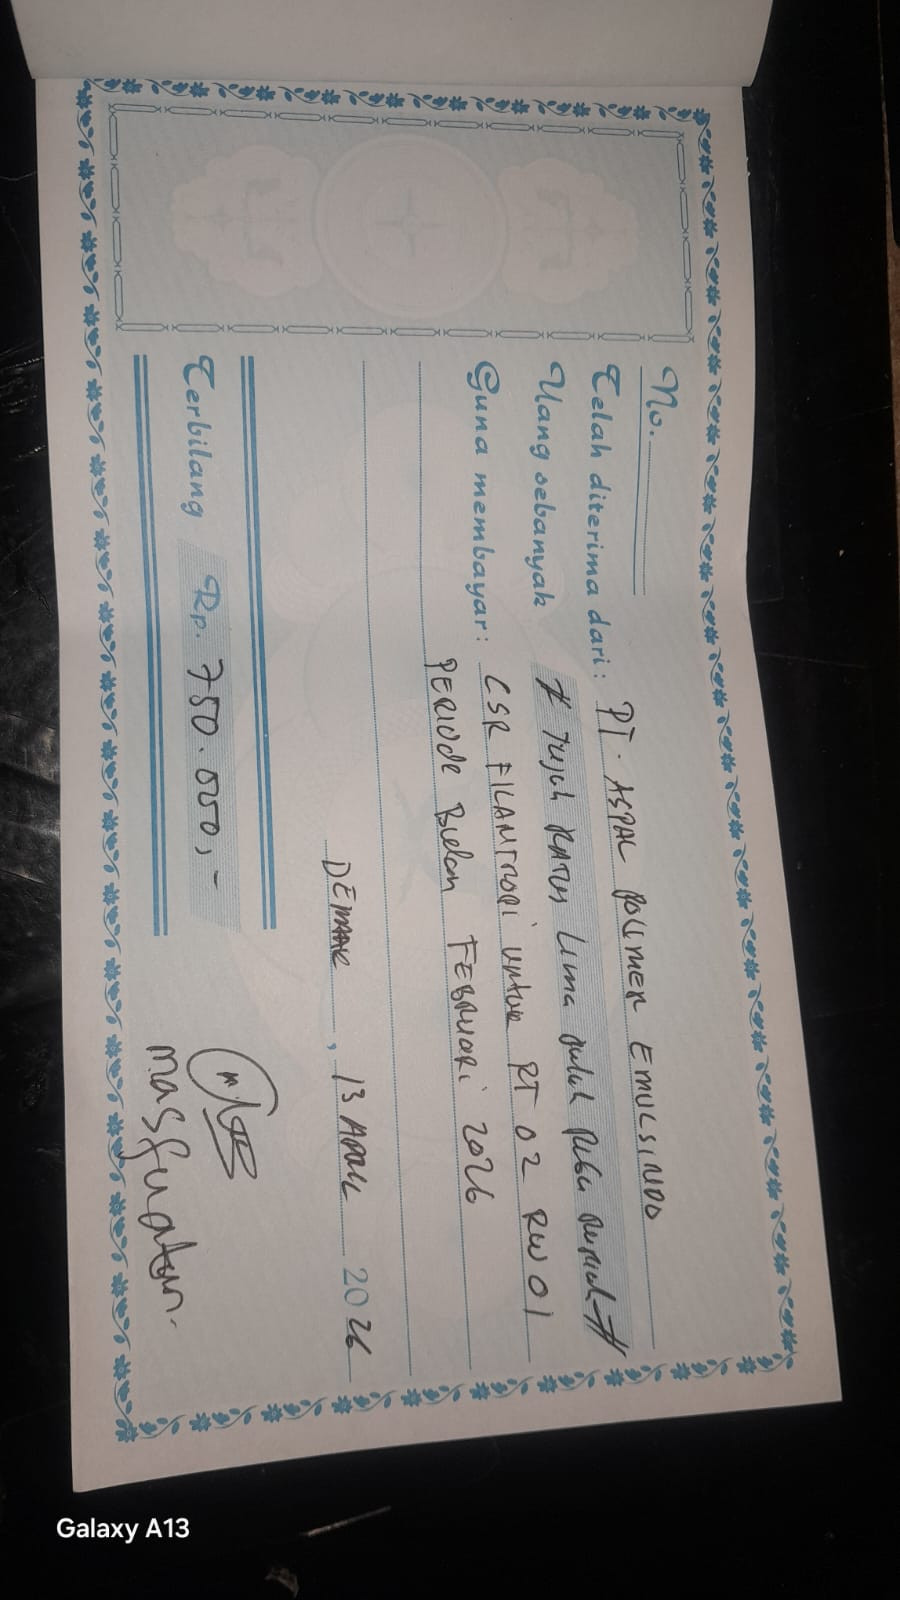 No.
Telah diterima dari: PT. ASPAL POLIMER EMULSINDO
Uang sebanyak # Tujuh RATUS Lima puluh Ribu Rupiah #
Guna membayar: CSR FILANTROPI untuk RT 02 RW 01
PERIODE Bulan FEBRUARI 2026
DEMAK, 13 APRIL 2026
Terbilang Rp. 750.000,-
masfuatun.
Galaxy A13